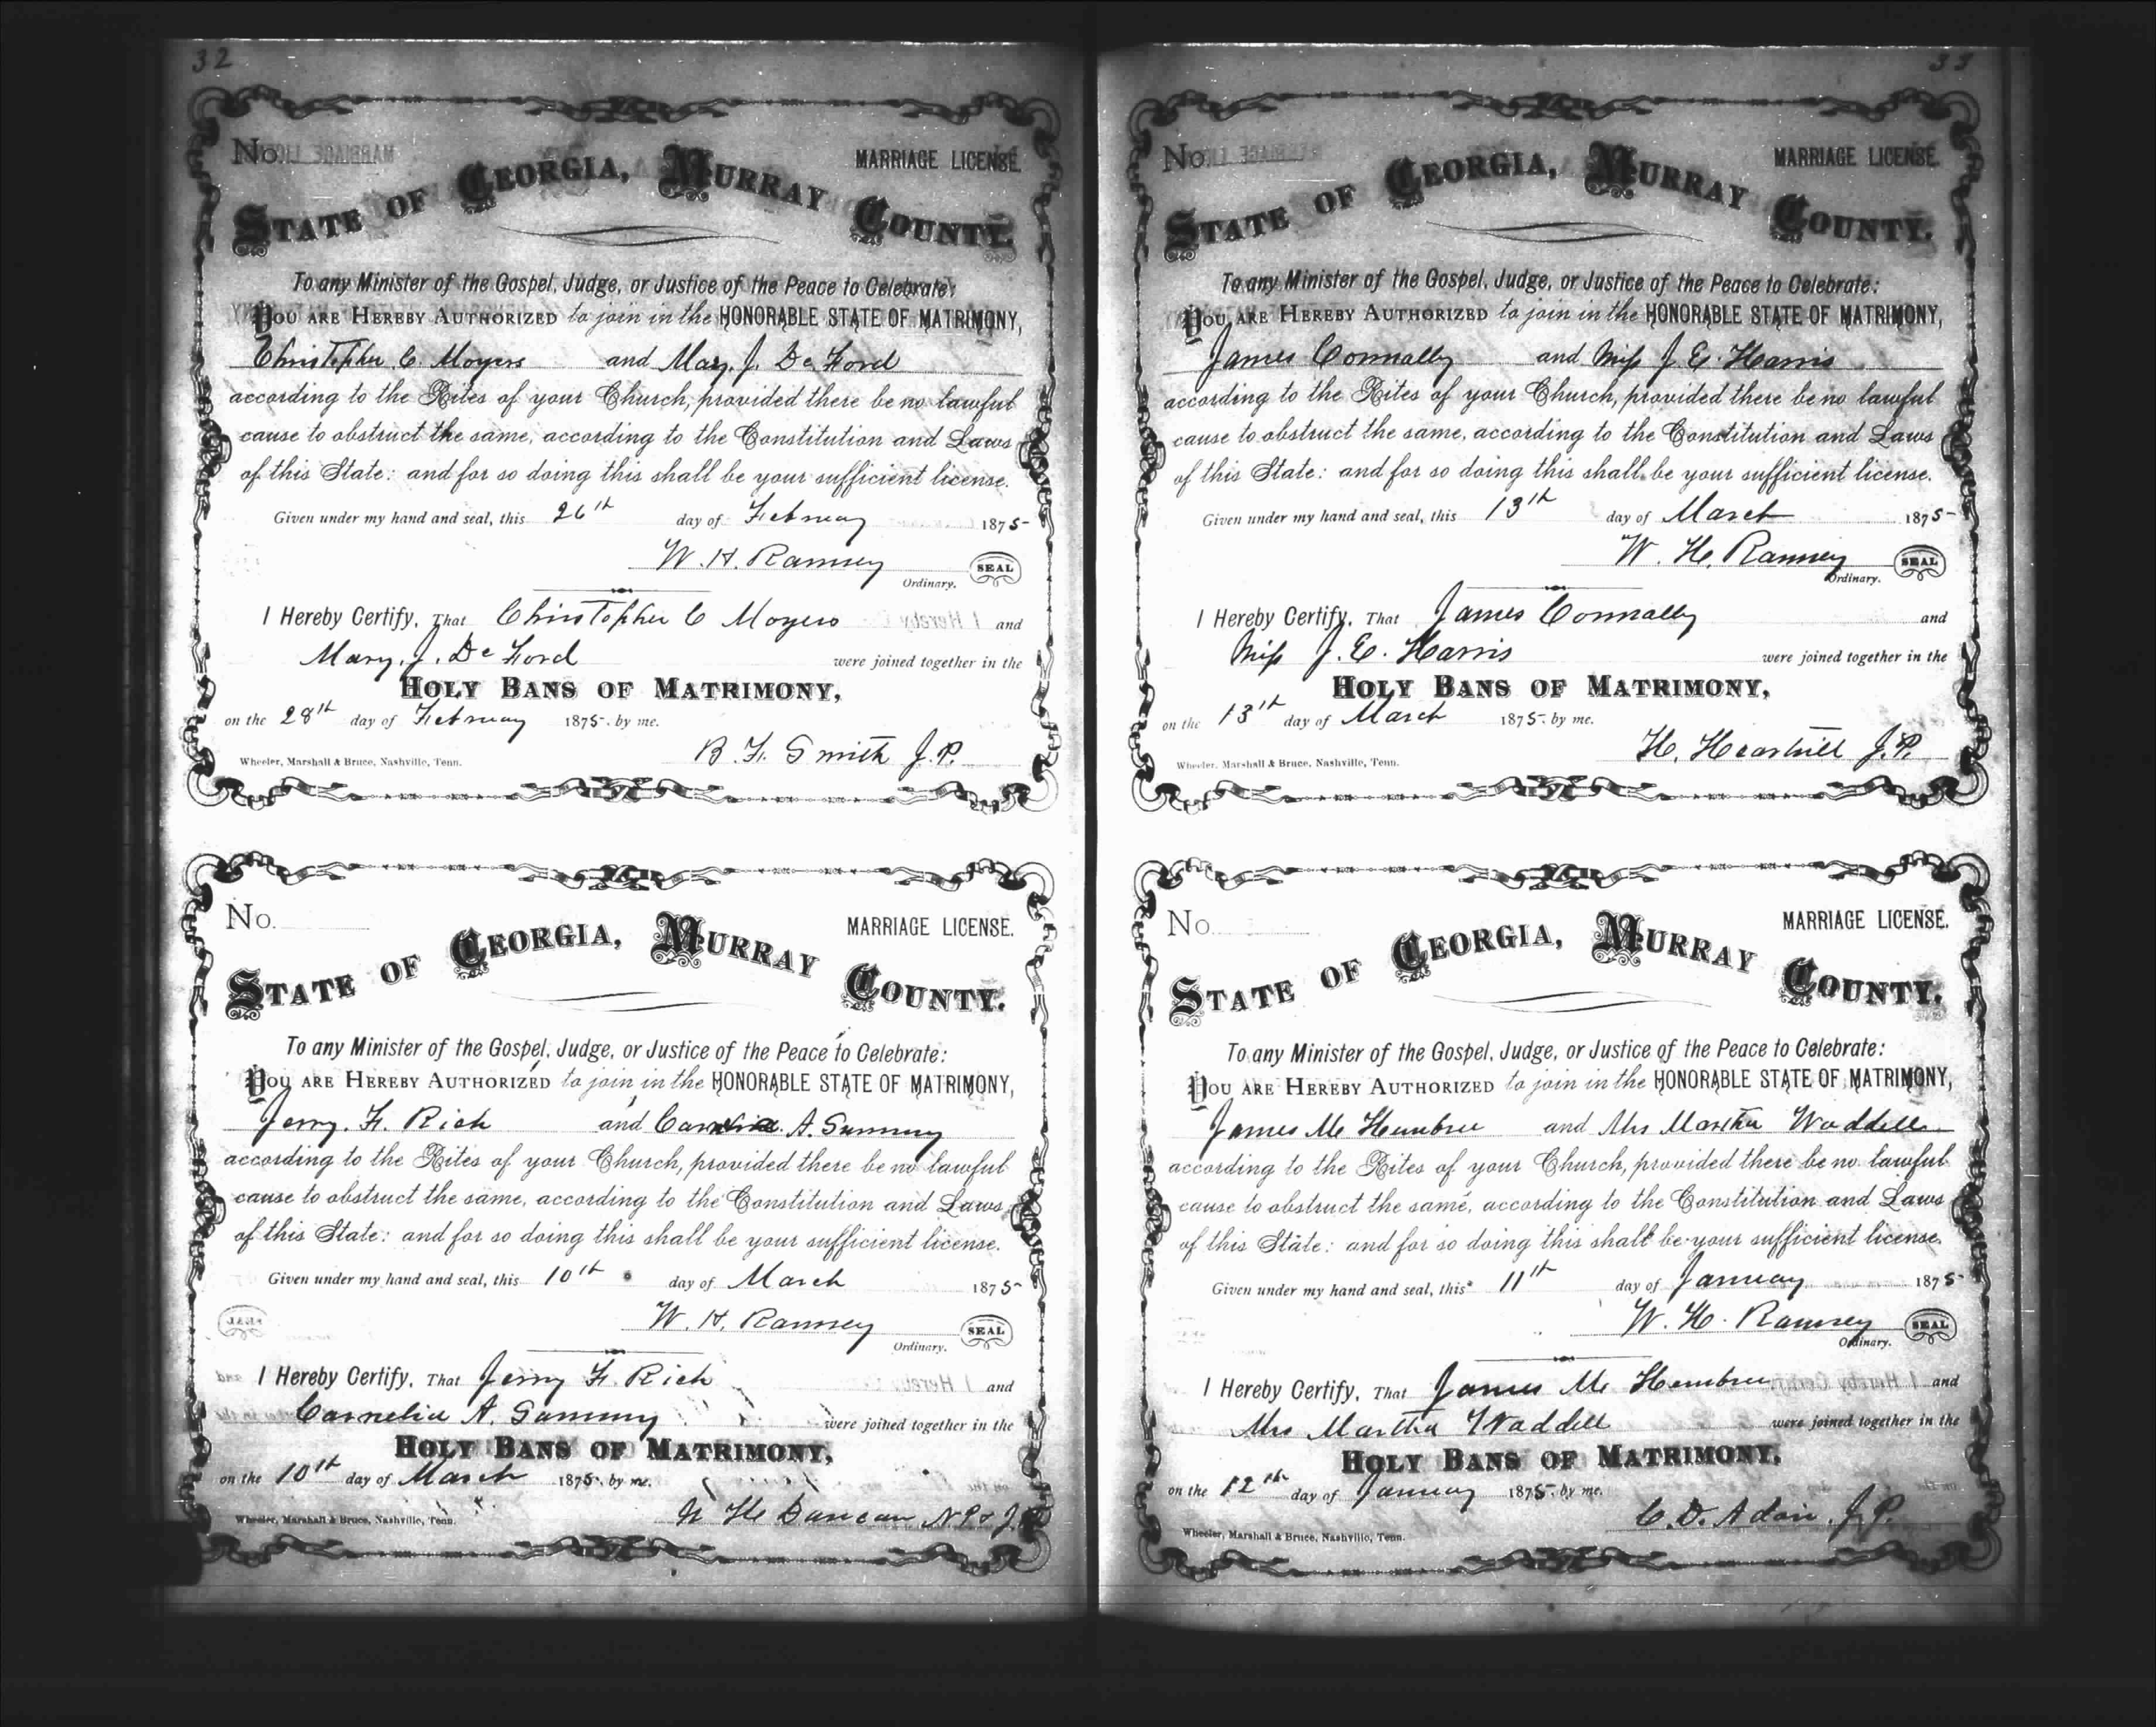 32
No. MARRIAGE LICENSE.
STATE OF GEORGIA, MURRAY COUNTY.
To any Minister of the Gospel, Judge, or Justice of the Peace to Celebrate:
YOU ARE HEREBY AUTHORIZED to join in the HONORABLE STATE OF MATRIMONY,
Christopher C. Moyers and Mary. J. De Ford
according to the Rites of your Church, provided there be no lawful
cause to obstruct the same, according to the Constitution and Laws
of this State: and for so doing this shall be your sufficient license.
Given under my hand and seal, this 26th day of February 1875
W. H. Ramsey SEAL
Ordinary.
I Hereby Certify, That Christopher C Moyers and
Mary. J. De Ford were joined together in the
HOLY BANS OF MATRIMONY,
on the 28th day of February 1875. by me.
B. F. Smith J.P.
Wheeler, Marshall & Bruce, Nashville, Tenn.
No. MARRIAGE LICENSE.
STATE OF GEORGIA, MURRAY COUNTY.
To any Minister of the Gospel, Judge, or Justice of the Peace to Celebrate:
YOU ARE HEREBY AUTHORIZED to join in the HONORABLE STATE OF MATRIMONY,
Jerry. F. Rich and A.
according to the Rites of your Church, provided there be no lawful
cause to obstruct the same, according to the Constitution and Laws
of this State: and for so doing this shall be your sufficient license.
Given under my hand and seal, this 10th day of March 1875
W. H. Ramsey SEAL
Ordinary.
I Hereby Certify, That Jerry F. Rich and
Cornelia A. were joined together in the
HOLY BANS OF MATRIMONY,
on the 10th day of March 1875. by me.
H Duncan N.P & J.P
Wheeler, Marshall & Bruce, Nashville, Tenn.
33
No. MARRIAGE LICENSE.
STATE OF GEORGIA, MURRAY COUNTY.
To any Minister of the Gospel, Judge, or Justice of the Peace to Celebrate:
YOU ARE HEREBY AUTHORIZED to join in the HONORABLE STATE OF MATRIMONY,
James Connally and Miss J. E. Harris
according to the Rites of your Church, provided there be no lawful
cause to obstruct the same, according to the Constitution and Laws
of this State: and for so doing this shall be your sufficient license.
Given under my hand and seal, this 13th day of March 1875
W. H. Ramsey SEAL
Ordinary.
I Hereby Certify, That James Connally and
Miss J. E. Harris were joined together in the
HOLY BANS OF MATRIMONY,
on the 13th day of March 1875. by me.
H. J.P.
Wheeler, Marshall & Bruce, Nashville, Tenn.
No. MARRIAGE LICENSE.
STATE OF GEORGIA, MURRAY COUNTY.
To any Minister of the Gospel, Judge, or Justice of the Peace to Celebrate:
YOU ARE HEREBY AUTHORIZED to join in the HONORABLE STATE OF MATRIMONY,
James M. Hembree and Mrs Martha Waddell
according to the Rites of your Church, provided there be no lawful
cause to obstruct the same, according to the Constitution and Laws
of this State: and for so doing this shall be your sufficient license.
Given under my hand and seal, this 11th day of January 1875
W. H. Ramsey SEAL
Ordinary.
I Hereby Certify, That James M. Hembree and
Mrs Martha Waddell were joined together in the
HOLY BANS OF MATRIMONY,
on the 12th day of January 1875. by me.
C. D. Adair. J.P.
Wheeler, Marshall & Bruce, Nashville, Tenn.